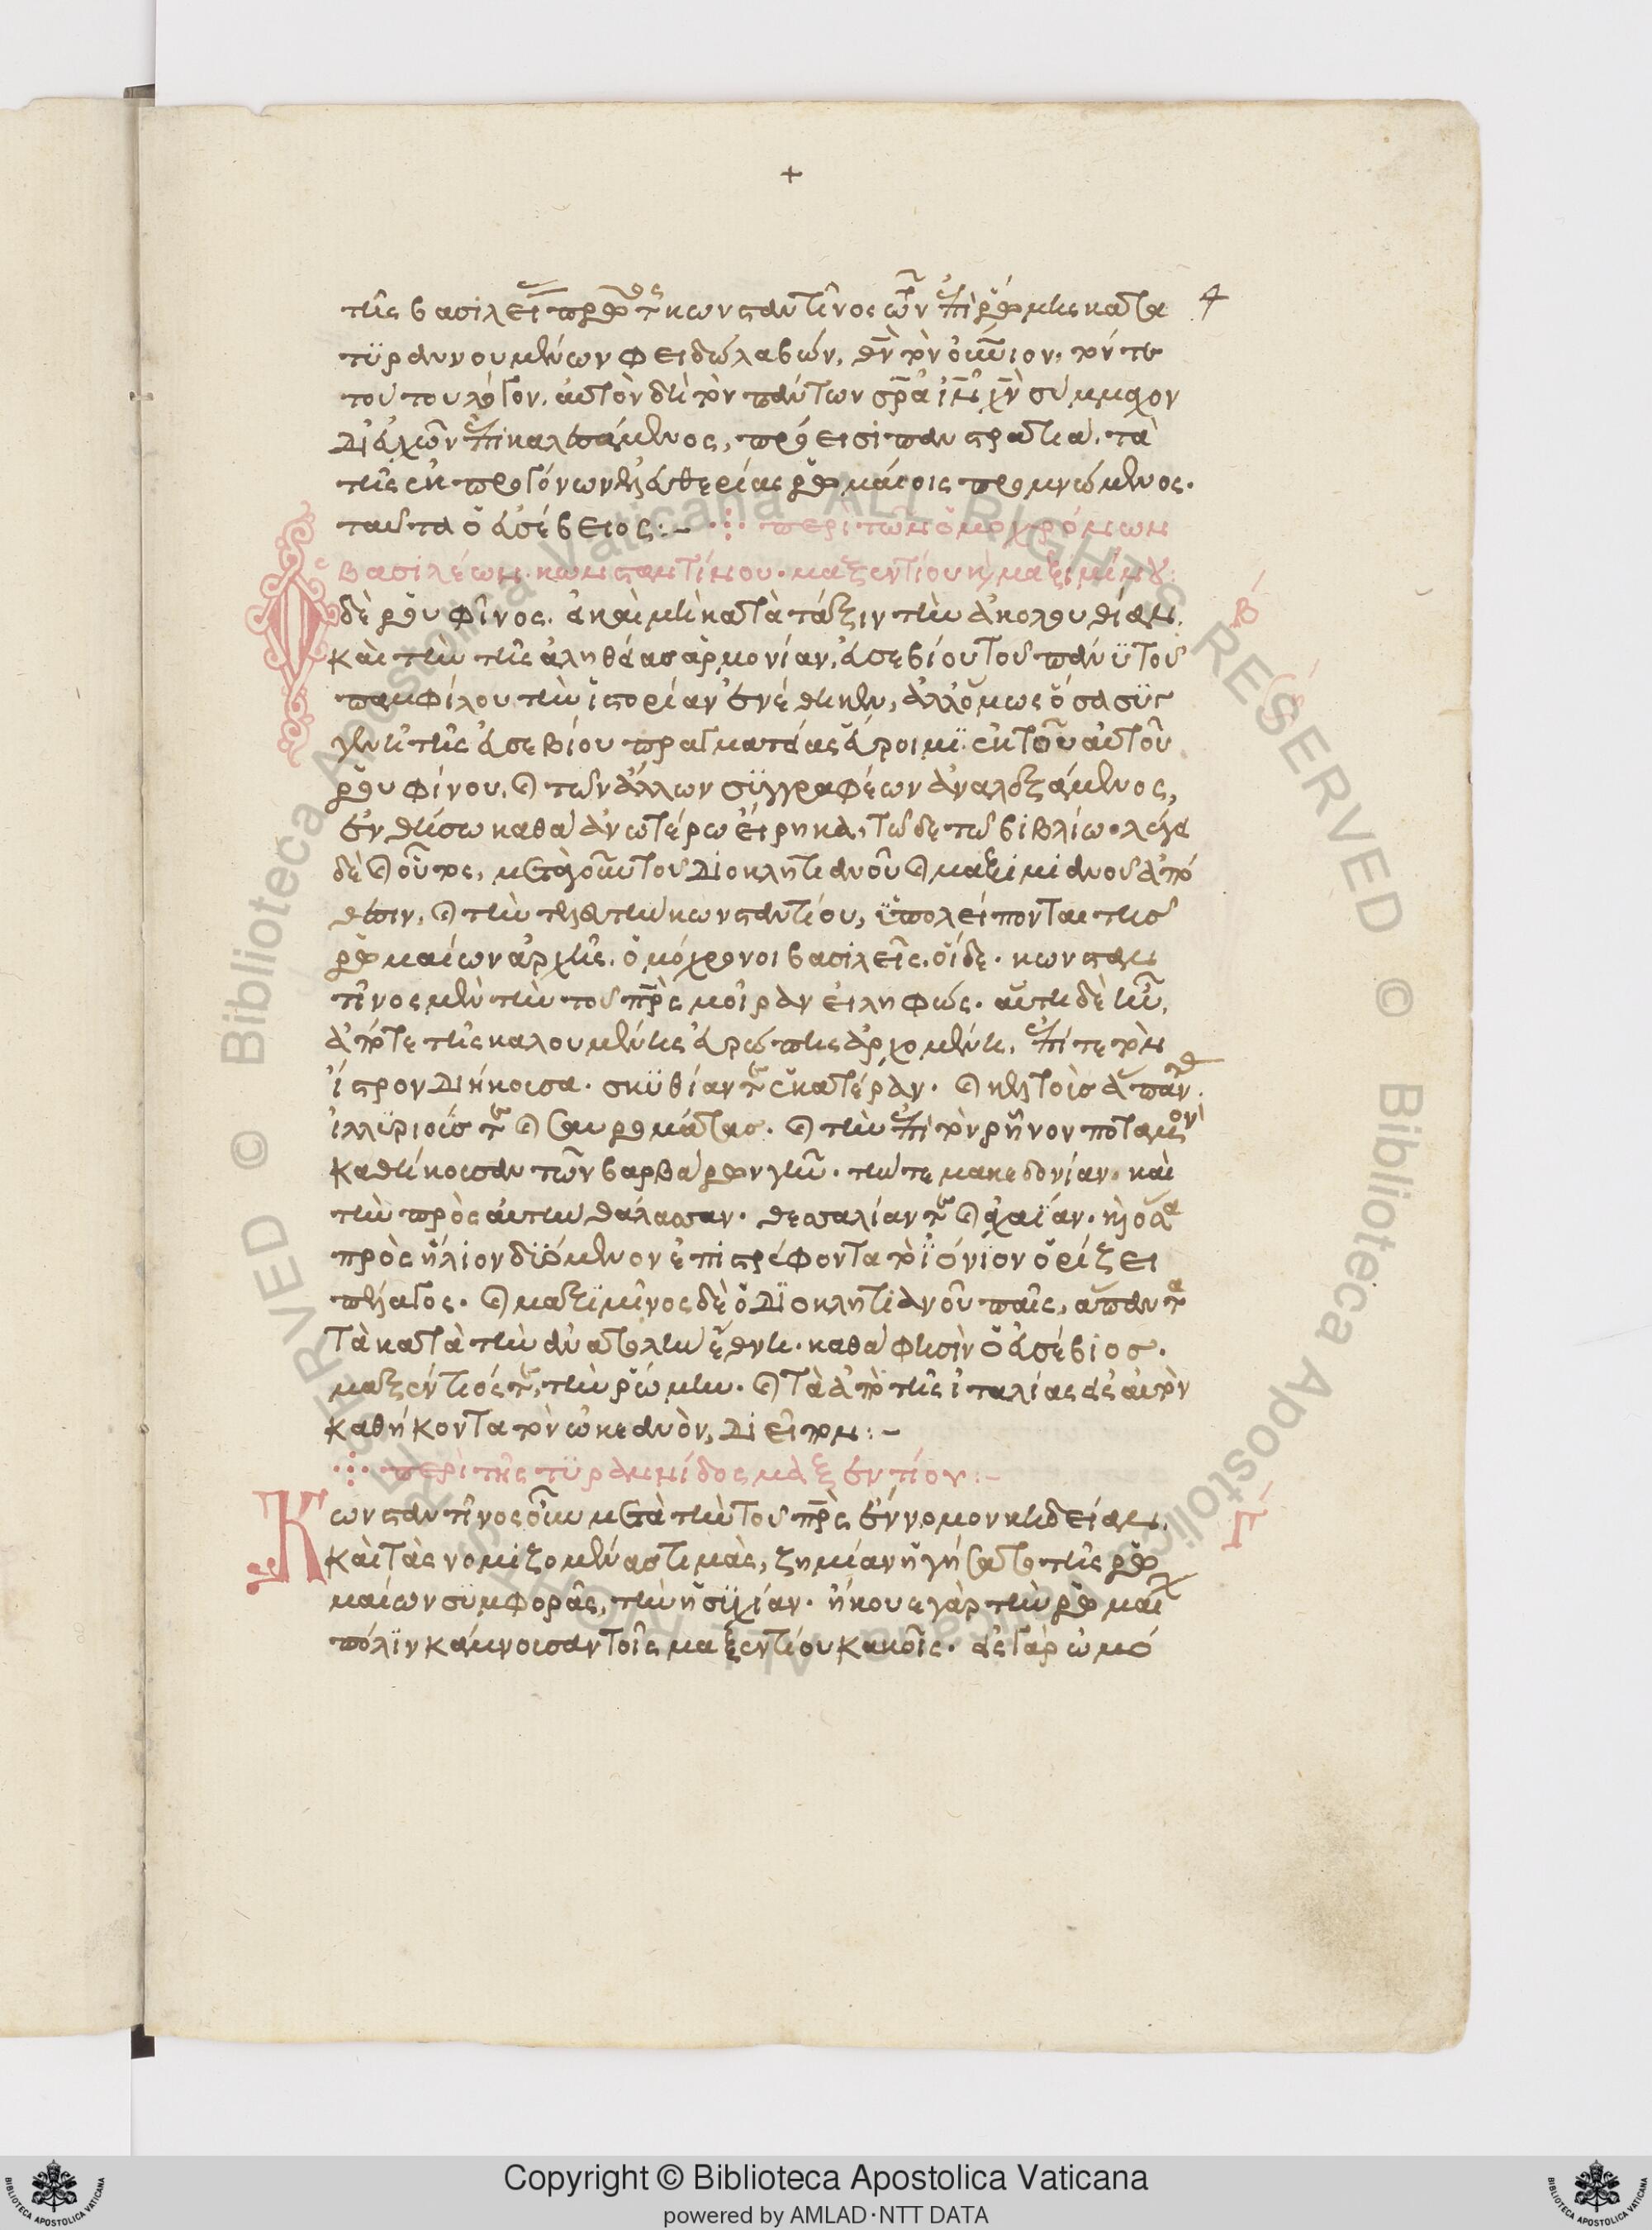 +
4
τῆς βασιλεί πρῶτος κωνσταντῖνος ὢν ἐπὶ ῥώμης κατα
τυραννουμένων φειδὼ λαβών, θν τὸν οὐνιον, τόν τε
τούτου λόγον, αὐτὸν δὴ τὸν πάντων σρα ιν χν σύμμαχον
δι᾽ εὐχῶν ἐπικαλεσάμενος, πρόεισι πανστρατιᾶ, τὰ
τῆς ἐκ προγόνων ἐλευθερίας ῥωμαίοις προμνώμενος.
ταῦτα ὁ εὐσέβειος :- περὶ τῶν ὁμοχρόνων
βασιλέων κωνσταντίνου. μαξεντίου κ μαξιμίνου:
Ὁ δὲ ῥουφῖνος. εἰ καὶ μὴ κατὰ τάξιν τὴν ἀκολουθίαν.
Β
καὶ τὴν τῆς ἀληθείας ἁρμονίαν, εὐσεβίου τοῦ πάνυ τοῦ
παμφίλου τὴν ἱστορίαν συνέθηκεν, ἀλλ᾽ ὅμως ὅσα συγ
γενῆ τῆς εὐσεβίου πραγματείας εὕροιμι ἐκ τοῦ αὐτοῦ
ῥουφίνου, καὶ τῶν ἄλλων συγγραφέων ἀναλεξάμενος,
συνθήσω καθὰ ἀνωτέρω εἴρηκα, τῶδε τῶ βιβλίω. λέγει
δὲ καὶ οὗτος, μετὰ γοῦν τοῦ διοκλητιανοῦ καὶ μαξιμιανοῦ ἀπό
θεσιν, καὶ τὴν τελευτὴν κωνσταντίου, ὑπολείπονται τῆς
ῥωμαίων ἀρχῆς. ὁμόχρονοι βασιλεῖς. οἵδε. κωνσταν
τῖνος μὲν τὴν τοῦ πρς μοῖραν εἰληφώς. αὕτη δὲ ἦν,
ἀπό τε τῆς καλουμένης εὐρώπης ἀρχομένη, ἐπί τε τὸν
ἴστρον διήκουσα. σκυθίαν τε ἑκατέραν. καὶ κελτοὺς ἅπαντας.
ἰλλυριούς τε καὶ σαυρομάτας. καὶ τὴν ἐπὶ τὸν ῥῆνον ποταμὸν
καθήκουσαν τῶν βαρβάρων γῆν. τήν τε μακεδονίαν. καὶ
τὴν πρὸς αὐτὴν θάλασσαν. θεσσαλίαν τε καὶ ἀχαϊαν. κ ὅσα
πρὸς ἥλιον δυόμενον ἐπιστρέφοντα τὸ ἰόνιον ὁρίζει
πέλαγος. καὶ μαξιμῖνος δὲ ὁ διοκλητιανοῦ παῖς, ἅπαντα
τὰ κατὰ τὴν ἀνατολὴν ἔθνη. καθά φησὶν ὁ εὐσέβιος.
μαξέντιός τε, τὴν ῥώμην. καὶ τὰ ἀπὸ τῆς ἰταλίας εἰς αὐτὸν
καθήκοντα τὸν ὠκεανὸν, διεῖπον :-
περὶ τῆς τυραννίδος μαξεντίου :-
Κωνσταντῖνος οὖν μετὰ τὴν τοῦ πρς ἔννομον κηδείαν.
Γ
καὶ τὰς νομιζομένας τιμὰς, ζημίαν ἡγήσατο τῆς ῥω
μαίων συμφορᾶς, τὴν ἡσυχίαν. ἤκουε γὰρ τὴν ῥωμαί
πόλιν κάμνουσαν τοῖς μαξεντίου κακοῖς. εἰς γὰρ ὠμό
Copyright © Biblioteca Apostolica Vaticana
powered by AMLAD·NTT DATA